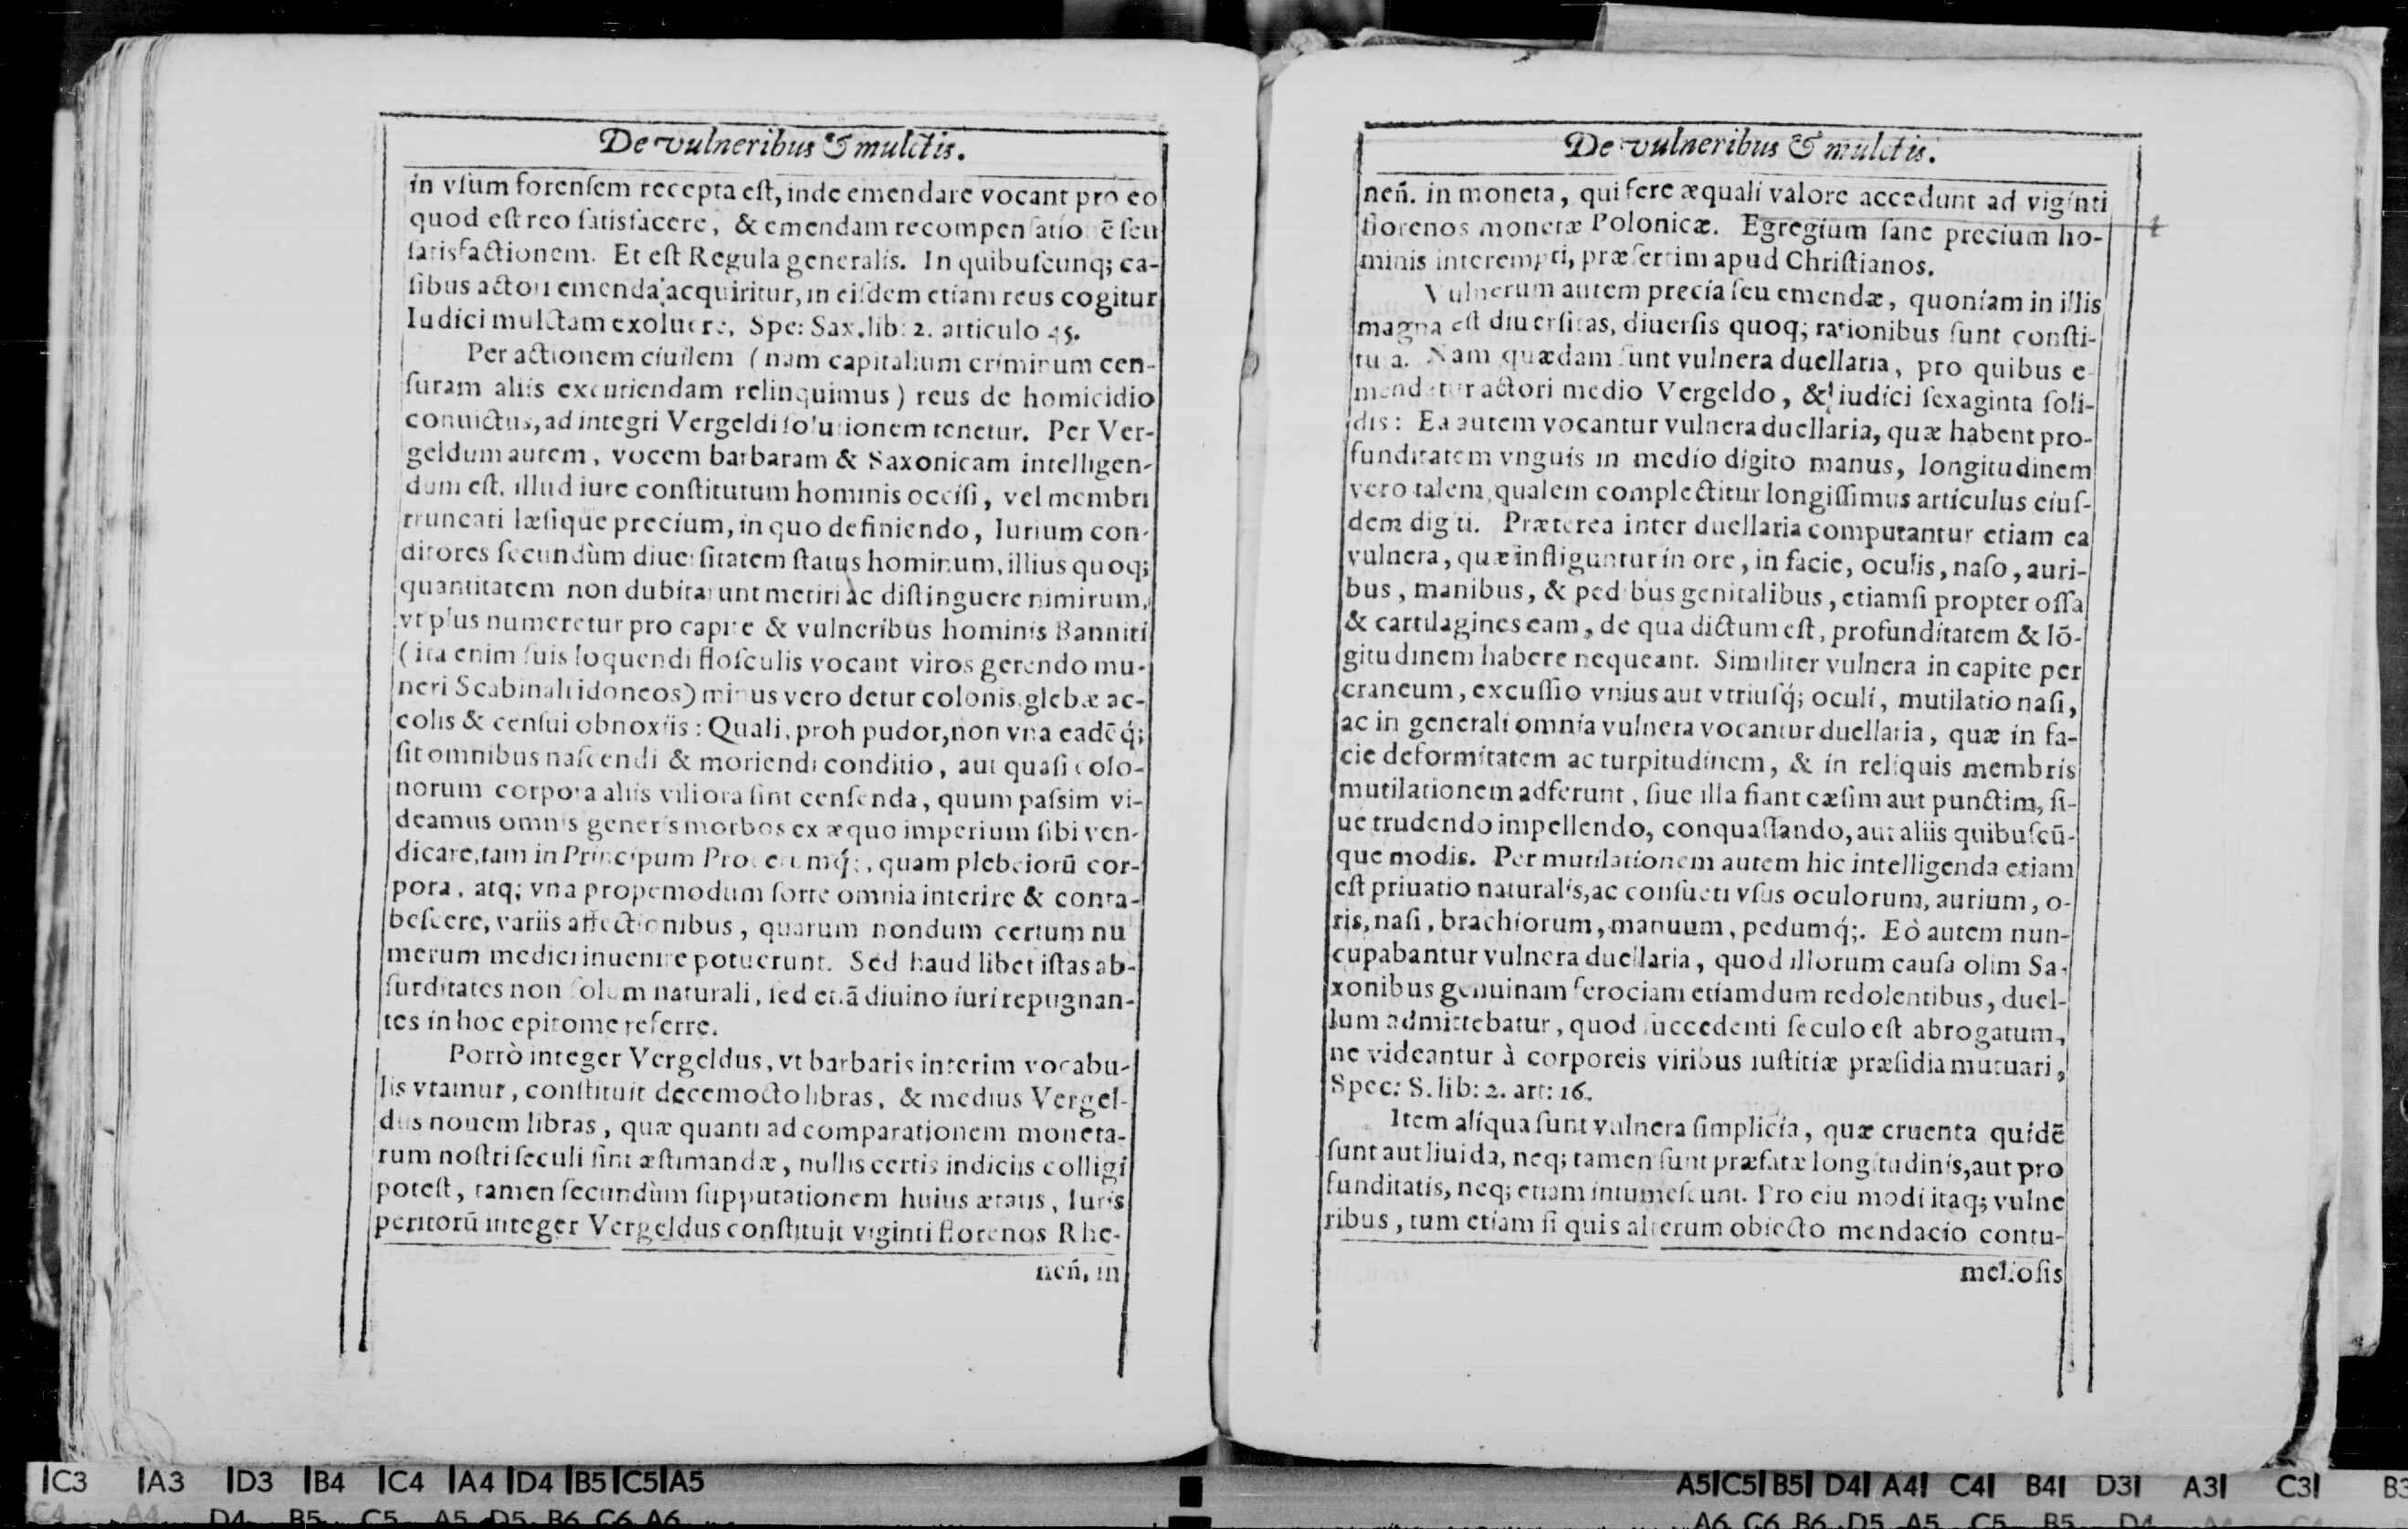 De vulneribus & mulctis.
in vſum forenſem recepta eſt, inde emendare vocant pro eo
quod eſt reo ſatisfacere, & emendam recompenſationē ſeu
ſatisfactionem. Et eſt Regula generalis. In quibuſcunq; ca-
ſibus actori emenda acquiritur, in eiſdem etiam reus cogitur
Iudici mulctam exoluere, Spe: Sax. lib: 2. articulo 45.
Per actionem ciuilem (nam capitalium criminum cen-
ſuram aliis excutiendam relinquimus) reus de homicidio
conuictus, ad integri Vergeldi ſolutionem tenetur. Per Ver-
geldum autem, vocem barbaram & Saxonicam intelligen-
dum eſt, illud iure conſtitutum hominis occiſi, vel membri
truncati læſique precium, in quo definiendo, Iurium con-
ditores ſecundùm diuerſitatem ſtatus hominum, illius quoq;
quantitatem non dubitarunt metiri ac diſtinguere nimirum,
vt plus numeretur pro capite & vulneribus hominis Banniti
(ita enim ſuis loquendi floſculis vocant viros gerendo mu-
neri Scabinali idoneos) minus vero detur colonis glebæ ac-
colis & cenſui obnoxiis: Quali, proh pudor, non vna eadēq́;
ſit omnibus naſcendi & moriendi conditio, aut quaſi colo-
norum corpora aliis viliora ſint cenſenda, quum paſsim vi-
deamus omnis generis morbos ex æquo imperium ſibi ven-
dicare, tam in Principum Procerumq́;, quam plebeiorū cor-
pora, atq; vna propemodum ſorte omnia interire & conta-
beſcere, variis affectionibus, quarum nondum certum nu
merum medici inuenire potuerunt. Sed haud libet iſtas ab-
ſurditates non ſolum naturali, ſed etiā diuino iuri repugnan-
tes in hoc epitome referre.
Porrò integer Vergeldus, vt barbaris interim vocabu-
lis vtamur, conſtituit decemocto libras, & medius Vergel-
dus nouem libras, quæ quanti ad comparationem moneta-
rum noſtri ſeculi ſint æſtimandæ, nullis certis indiciis colligi
poteſt, tamen ſecundùm ſupputationem huius ætatis, Iuris
peritorū integer Vergeldus conſtituit viginti florenos Rhe-
neñ, in
De vulneribus & mulctis.
neñ. in moneta, qui fere æquali valore accedunt ad viginti
florenos monetæ Polonicæ. Egregium ſane precium ho-
minis interempti, præſertim apud Chriſtianos.
Vulnerum autem precia ſeu emendæ, quoniam in illis
magna eſt diuerſitas, diuerſis quoq; rationibus ſunt conſti-
tuta. Nam quædam ſunt vulnera duellaria, pro quibus e
mendatur actori medio Vergeldo, & iudici ſexaginta ſoli-
dis: Ea autem vocantur vulnera duellaria, quæ habent pro-
funditatem vnguis in medio digito manus, longitudinem
vero talem, qualem complectitur longiſſimus articulus eiuſ-
dem digiti. Præterea inter duellaria computantur etiam ea
vulnera, quæ infliguntur in ore, in facie, oculis, naſo, auri-
bus, manibus, & pedibus genitalibus, etiamſi propter oſſa
& cartilagines eam, de qua dictum eſt, profunditatem & lō-
gitudinem habere nequeant. Similiter vulnera in capite per
craneum, excuſſio vnius aut vtriuſq́; oculi, mutilatio naſi,
ac in generali omnia vulnera vocantur duellaria, quæ in fa-
cie deformitatem ac turpitudinem, & in reliquis membris
mutilationem adferunt, ſiue illa fiant cæſim aut punctim, ſi-
ue trudendo impellendo, conquaſſando, aut aliis quibuſcū-
que modis. Per mutilationem autem hic intelligenda etiam
eſt priuatio naturalis, ac conſueti vſus oculorum, aurium, o-
ris, naſi, brachiorum, manuum, pedumq́;. Eò autem nun-
cupabantur vulnera duellaria, quod illorum cauſa olim Sa-
xonibus genuinam ferociam etiamdum redolentibus, duel-
lum admittebatur, quod ſuccedenti ſeculo eſt abrogatum,
ne videantur à corporeis viribus iuſtitiæ præſidia mutuari,
Spec: S. lib: 2. art: 16.
Item aliqua ſunt vulnera ſimplicia, quæ cruenta quidē
ſunt aut liuida, neq; tamen ſunt præfatæ longitudinis, aut pro
funditatis, neq; etiam intumeſcunt. Pro eiu modi itaq; vulne
ribus, tum etiam ſi quis alterum obiecto mendacio contu-
melioſis
C3 A3 D3 B4 C4 A4 D4 B5 C5 A5
A5 C5 B5 D4 A4 C4 B4 D3 A3 C3 B3
C4 A4 D4 B5 C5 A5 D5 B6 C6 A6
A6 C6 B6 D5 A5 C5 B5 D4 A4 C4